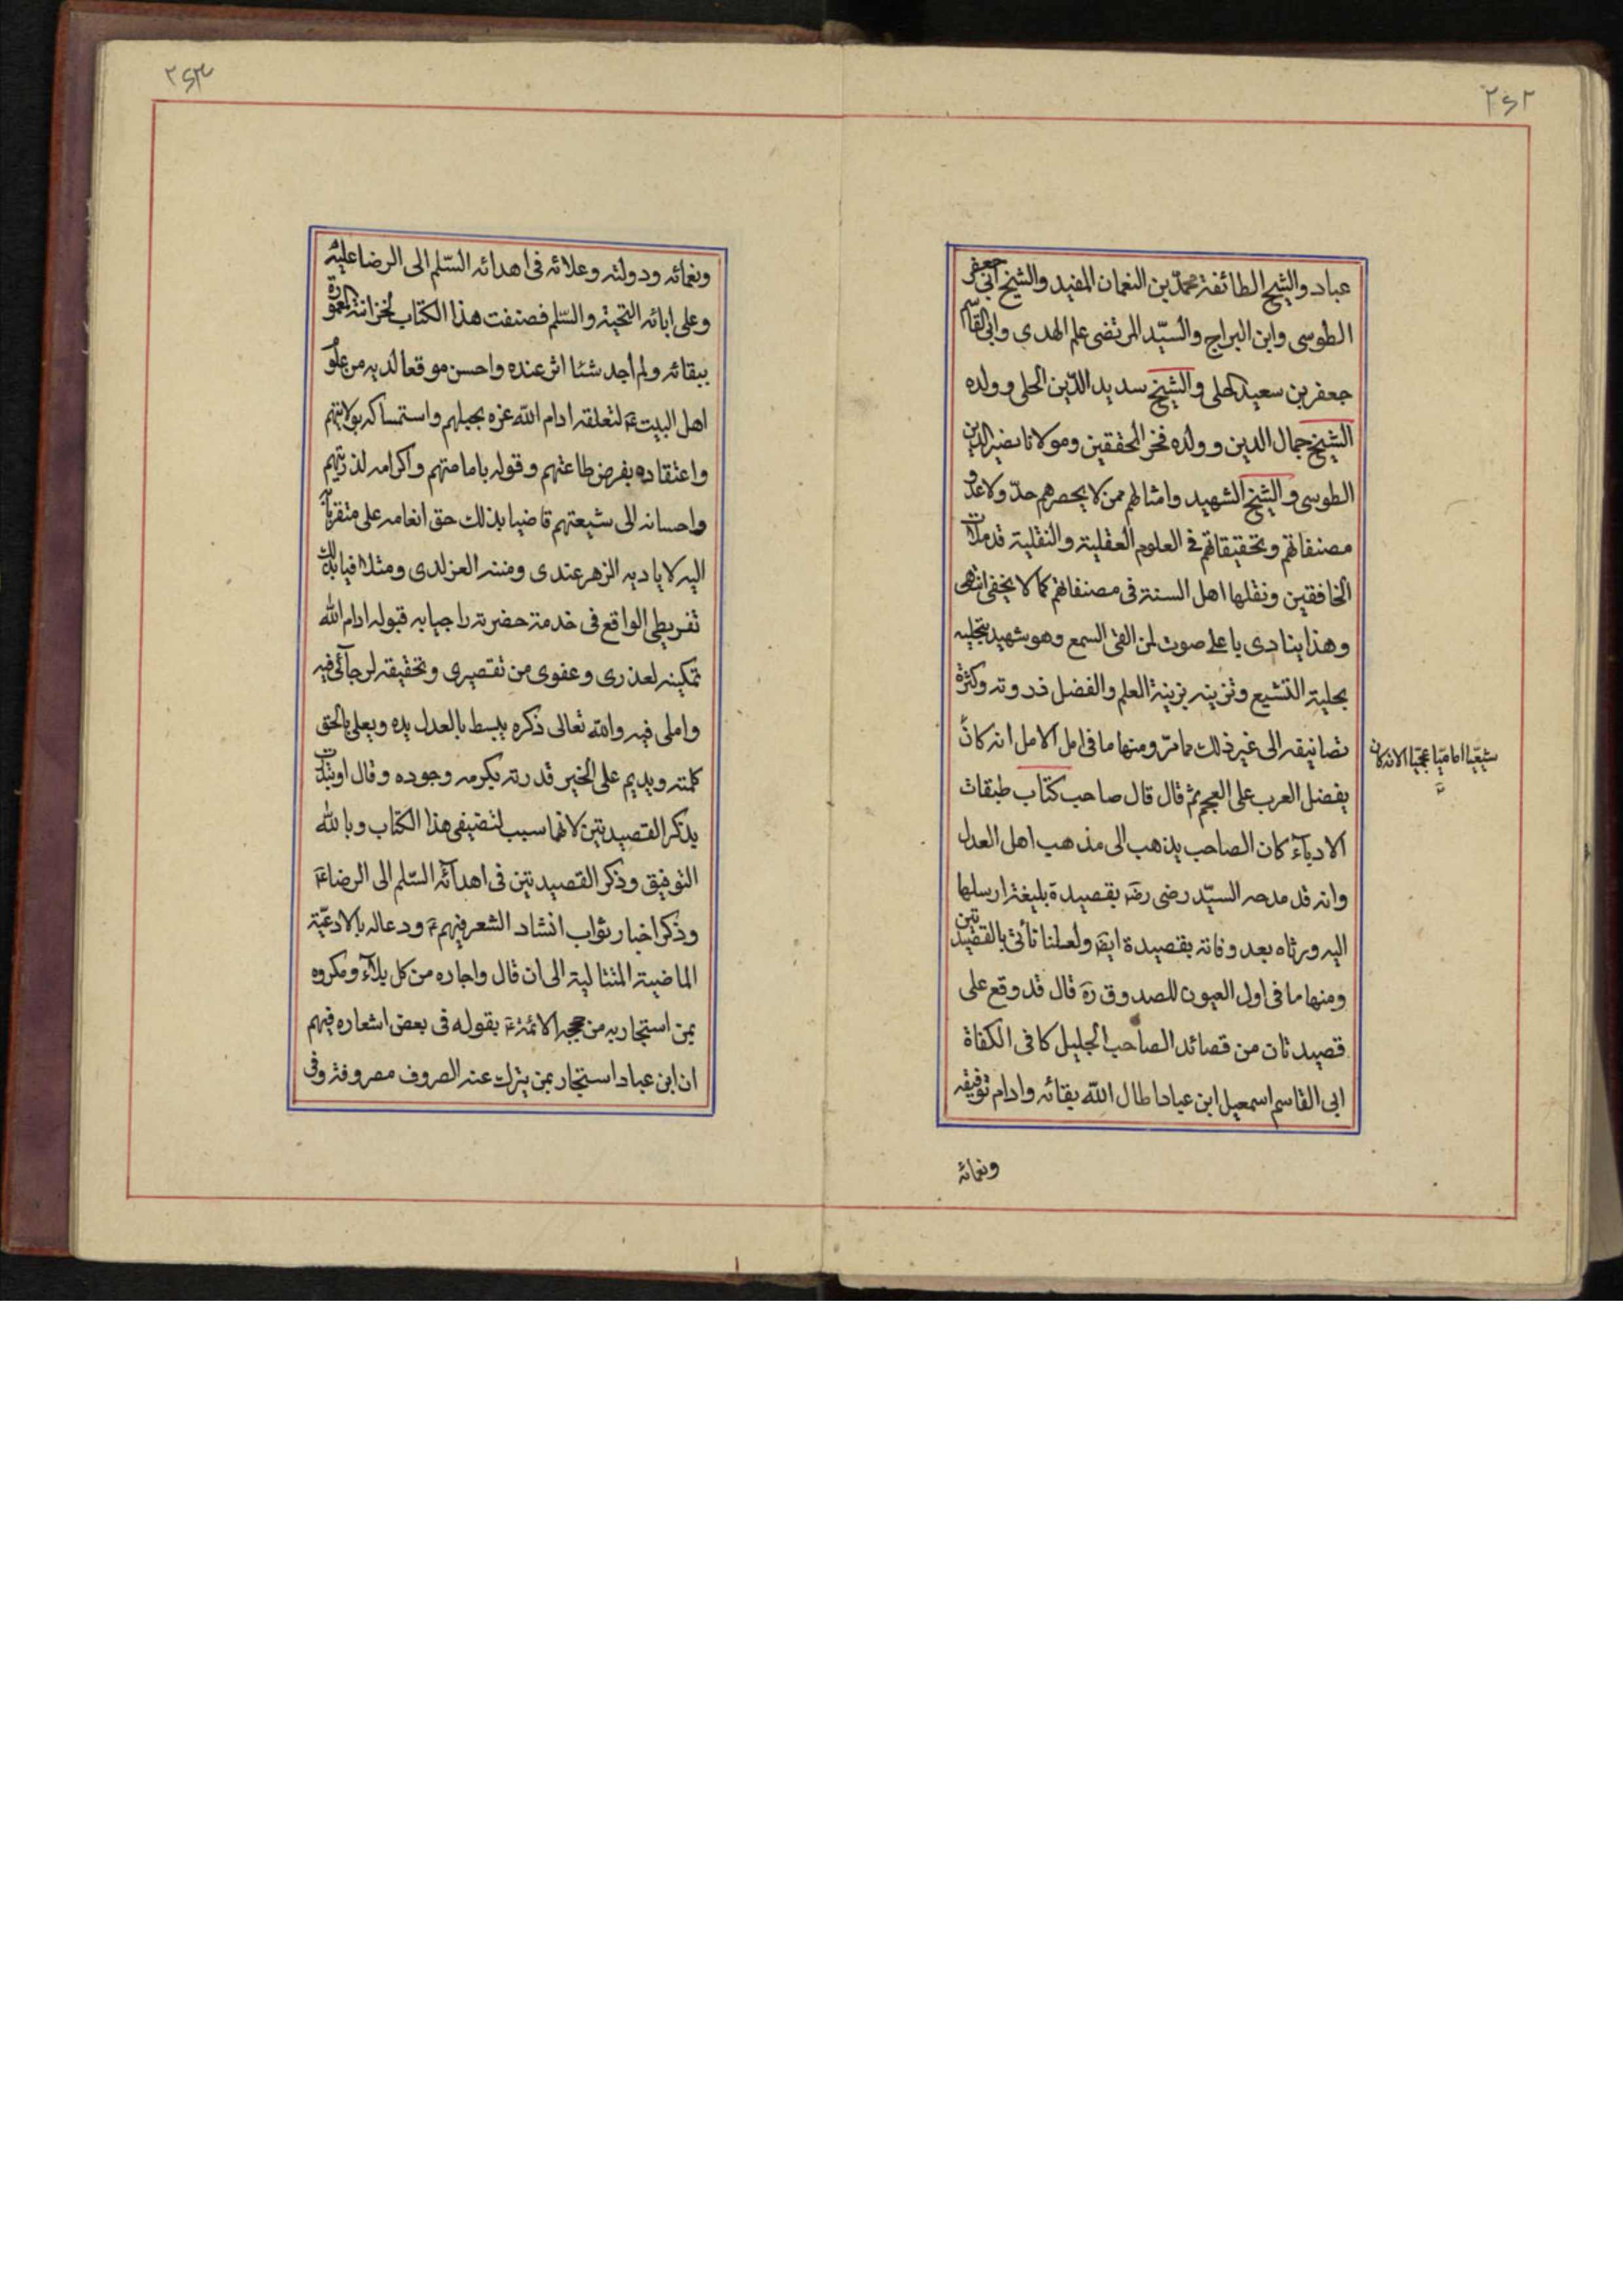 ٢٤٢
عباد والشيخ الطائفة محمّد بن النعمان المفيد والشيخ ابى جعفر
الطوسى وابن البراج والسّيّد المرتضى علم الهدى وابى القاسم
جعفر بن سعيد الحلى والشيخ سديد الدّين الحلى وولده
الشيخ جمال الدين وولده فخر المحققين ومولانا نصير الدين
الطوسى والشيخ الشهيد وامثالهم ممن لا يحصرهم حدّ ولا عدّ و
مصنفاتهم وتحقيقاتهم فى العلوم العقلية والنقلية قد ملات
الخافقين ونقلها اهل السنة فى مصنفاتهم كما لا يخفى انتهى
وهذا ينادى باعلى صوت لمن القى السمع وهو شهيد بتحليه
بحلية التشيع وتزينه بزينة العلم والفضل ذروته وكثرة
تصانيفه الى غير ذلك مما مرّ ومنها ما فى امل الامل انه كان
شيعيّا اماميّا عجميّا الا انه كان
يفضل العرب على العجم ثم قال قال صاحب كتاب طبقات
الادبآء كان الصاحب يذهب الى مذهب اهل العدل
وانه قد مدحه السيّد رضى رضه بقصيدة بليغة ارسلها
اليه ورثاه بعد وفاته بقصيدة ايضا ولعلنا نأتى بالقصيدتين
ومنها ما فى اول العيون للصدوق ره قال قد وقع على
قصيدتان من قصائد الصاحب الجليل كافى الكفاة
ابى القاسم اسمعيل ابن عباد اطال الله بقائه وادام توفيقه
ونعمائه
٢٤٣
ونعمائه ودولته وعلائه فى اهدائه السّلم الى الرضا عليه
وعلى ابائه التحية والسّلم فصنفت هذا الكتاب لخزانته المعمورة
ببقائه ولم اجد شئا اثر عنده واحسن موقعا لديه من علوم
اهل البيت ع لتعلقه ادام الله عزه بحبلهم واستمساكه بولايتهم
واعتقاده بفرض طاعتهم وقوله بامامتهم واكرامه لذريتهم
واحسانه الى شيعتهم قاضيا بذلك حق انعامه على متقربا
اليه لاياديه الزهر عندى ومننه الغر لدى ومتلافيا بذلك
تفريطى الواقع فى خدمة حضرته راجيا به قبوله ادام الله
تمكينه لعذرى وعفوى من تقصيرى وتحقيقه لرجآئى فيه
واملى فيه والله تعالى ذكره يبسط بالعدل يده ويعلى بالحق
كلمته ويديم على الخير قدرته بكرمه وجوده وقال ابتدات
يذكر القصيدتين لانهما سبب لتصنيفى هذا الكتاب وبالله
التوفيق وذكر القصيدتين فى اهدآئه السّلم الى الرضا ع
وذكر اخبار بثواب انشاد الشعر فيهم ع ودعا له بالادعيّة
الماضية المتتالية الى ان قال واجاره من كل بلآء ومكروه
بمن استجار به من حججه الائمة ع بقوله فى بعض اشعاره فيهم
ان ابن عباد استجار بمن يترك عنه الصروف مصروفة وفى